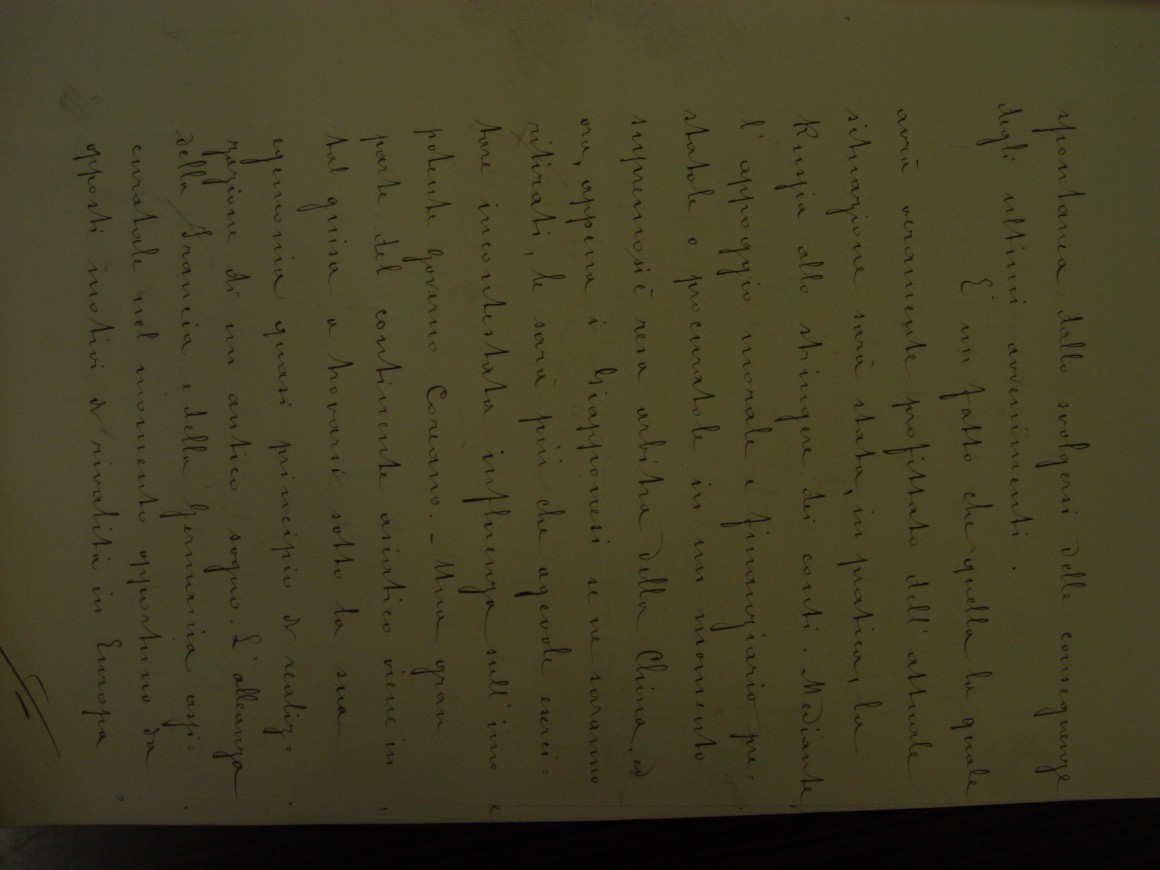 spontanea dallo svolgersi delle conseguenze
degli ultimi avvenimenti.
E' un fatto che quella la quale
avrà veramente profittato dell'attuale
situazione sarà stata, in pratica, la
Russia allo stringere dei conti. Mediante,
l'appoggio morale e finanziario pre=
statole o procuratole in un momento
supremo si è resa arbitra della China, ed
ora, appena i Giapponesi se ne saranno
ritirati, le sarà più che agevole eserci=
tare incontestata influenza sull'im
potente Governo Coreano. - Una gran
parte del continente asiatico viene in
tal guisa a trovarsi sotto la sua
egemonia quasi principio di realiz=
zazione di un antico sogno. L'alleanza
della Francia e della Germania assi=
curatale nel momento opportuno da
opposti motivi di rivalità in Europa